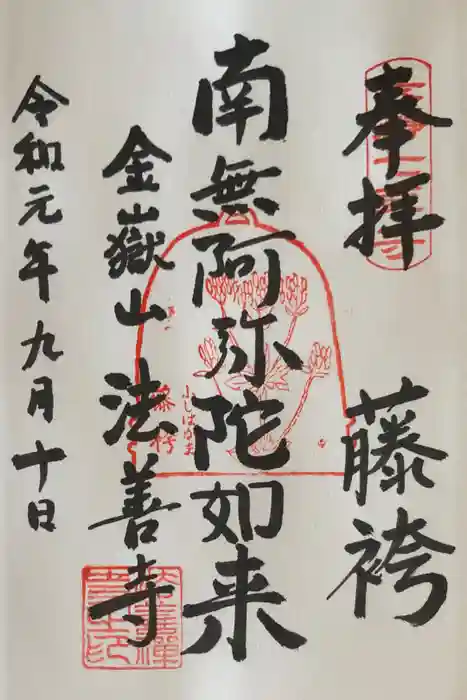 奉拝
藤袴
南無阿弥陀如来
ふじばかま
藤袴
金嶽山 法善寺
令和元年九月十日